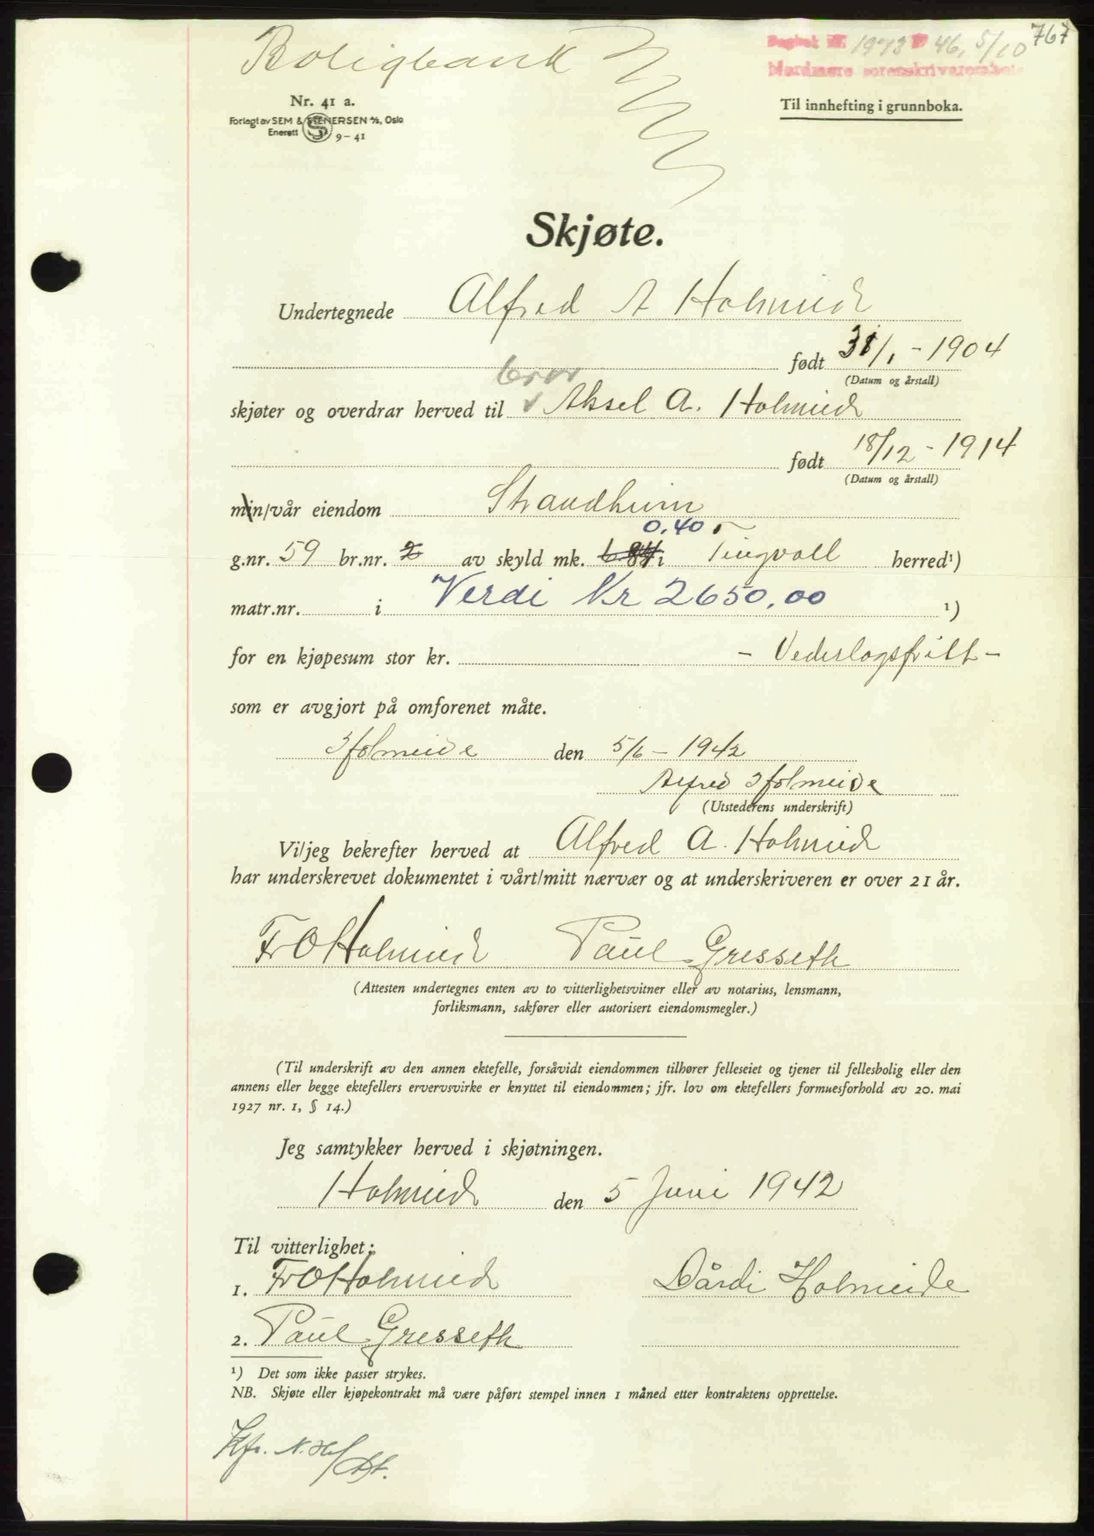 Boligbank
Dagbok nr. 1973 46, 5/10 767
Nordmøre sorenskriverembete
Nr. 41 a.
Forlagt av SEM & STENERSEN A/S, Oslo
Enerett 9-41
Til innhefting i grunnboka.
Skjøte.
Undertegnede Alfred A Holmeide
født 31/1 - 1904
(Datum og årstall)
bror
skjøter og overdrar herved til Aksel A. Holmeide
født 18/12 - 1914
(Datum og årstall)
min/vår eiendom Strandheim
0.40
g.nr. 59 br.nr. av skyld mk. i Tingvoll herred¹)
matr.nr. i Verdi Kr 2650,00 ¹)
for en kjøpesum stor kr. - Vederlagsfritt -
som er avgjort på omforenet måte.
Holmeide den 5/6 - 1942
Alfred Holmeide
(Utstederens underskrift)
Vi/jeg bekrefter herved at Alfred A. Holmeide
har underskrevet dokumentet i vårt/mitt nærvær og at underskriveren er over 21 år.
Fr O Holmeide Paul Gresseth
(Attesten undertegnes enten av to vitterlighetsvitner eller av notarius, lensmann,
forliksmann, sakfører eller autorisert eiendomsmegler.)
(Til underskrift av den annen ektefelle, forsåvidt eiendommen tilhører felleseiet og tjener til fellesbolig eller den
annens eller begge ektefellers ervervsvirke er knyttet til eiendommen; jfr. lov om ektefellers formuesforhold av 20. mai
1927 nr. 1, § 14.)
Jeg samtykker herved i skjøtningen.
Holmeide den 5 Juni 1942
Til vitterlighet:
1. Fr O Holmeide Dårdi Holmeide
2. Paul Gresseth
¹) Det som ikke passer strykes.
NB. Skjøte eller kjøpekontrakt må være påført stempel innen 1 måned etter kontraktens opprettelse.